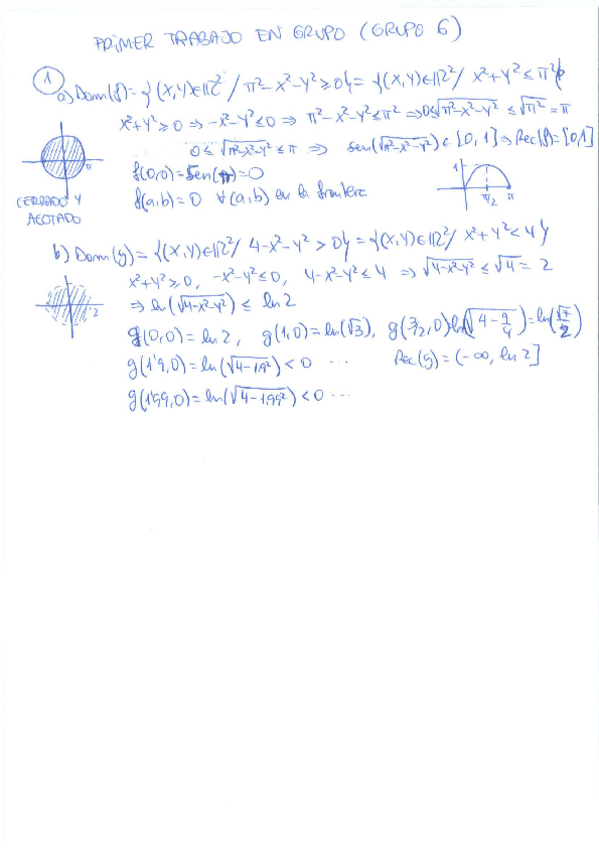 PRIMER TRABAJO EN GRUPO (GRUPO 6)
① a) Dom(f) = {(x,y)∈ℝ² / π²-x²-y² ≥ 0} = {(x,y)∈ℝ² / x²+y² ≤ π²}
x²+y² ≥ 0 ⇒ -x²-y² ≤ 0 ⇒ π²-x²-y² ≤ π² ⇒ 0 ≤ √(π²-x²-y²) ≤ √π² = π
0 ≤ √(π²-x²-y²) ≤ π ⇒ sen(√(π²-x²-y²)) ∈ [0,1] ⇒ Rec(f) = [0,1]
π
f(0,0) = sen(π) = 0
f(a,b) = 0 ∀(a,b) en la frontera
CERRADO Y
ACOTADO
1
π/2 π
b) Dom(g) = {(x,y)∈ℝ² / 4-x²-y² > 0} = {(x,y)∈ℝ² / x²+y² < 4}
x²+y² ≥ 0, -x²-y² ≤ 0, 4-x²-y² ≤ 4 ⇒ √(4-x²-y²) ≤ √4 = 2
2
⇒ ln(√(4-x²-y²)) ≤ ln 2
g(0,0) = ln 2, g(1,0) = ln(√3), g(3/2,0) ln(√(4-9/4)) = ln(√7/2)
g(1'9,0) = ln(√(4-1,9²)) < 0 ... Rec(g) = (-∞, ln 2]
g(1'99,0) = ln(√(4-1,99²)) < 0 ...